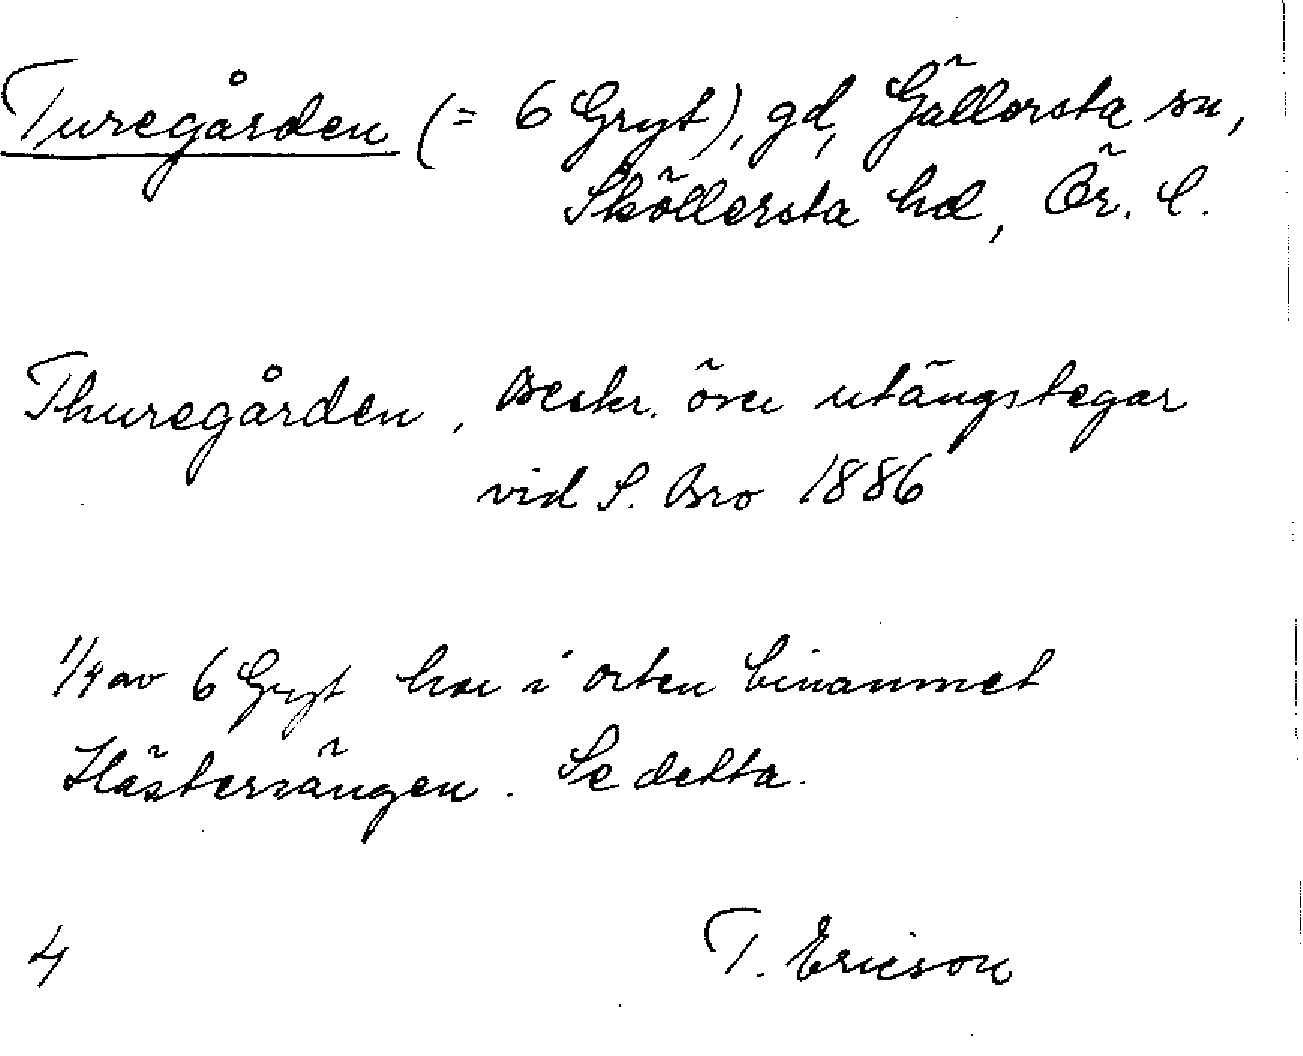 Turegården (= 6 Gryt), gd, Gällersta sn,
Sköllersta hd, Ör. l.
Thuregården, Beskr. över utängstegar
vid S. Bro 1886
1/4 av 6 Gryt har i orten binamnet
Hästersängen. Se detta.
4 T. Ericson